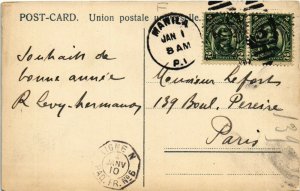 POST-CARD. Union postale
MANILA
JAN 1
8 AM
P.I.
Souhaits de
bonne année
R Levy-hermanos
Monsieur Lefort
139 Boul. Pereire
Paris
JANV
10